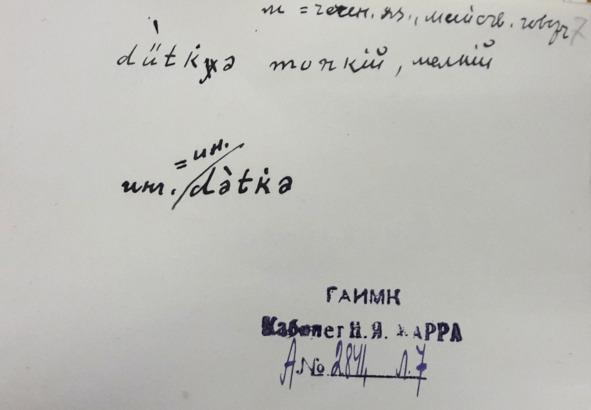 m = чечн. яз., майств. говор 7
dűtkχə тонкiй, мелкiй
= ин.
ит. / dàtkə
ГАИМК
Кабинет Н. Я. МАРРА
А № 2841, л. 7